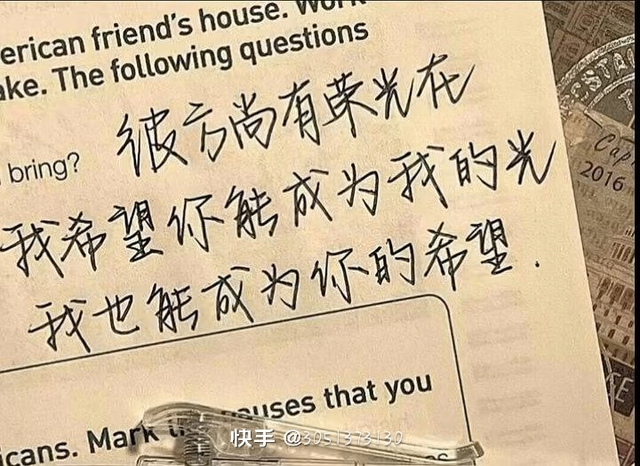 erican friend's house.
ake. The following questions
彼方尚有荣光在
bring?
我希望你能成为我的光
我也能成为你的希望.
Cap
2016
uses that you
icans. Mark
快手 @3051373130